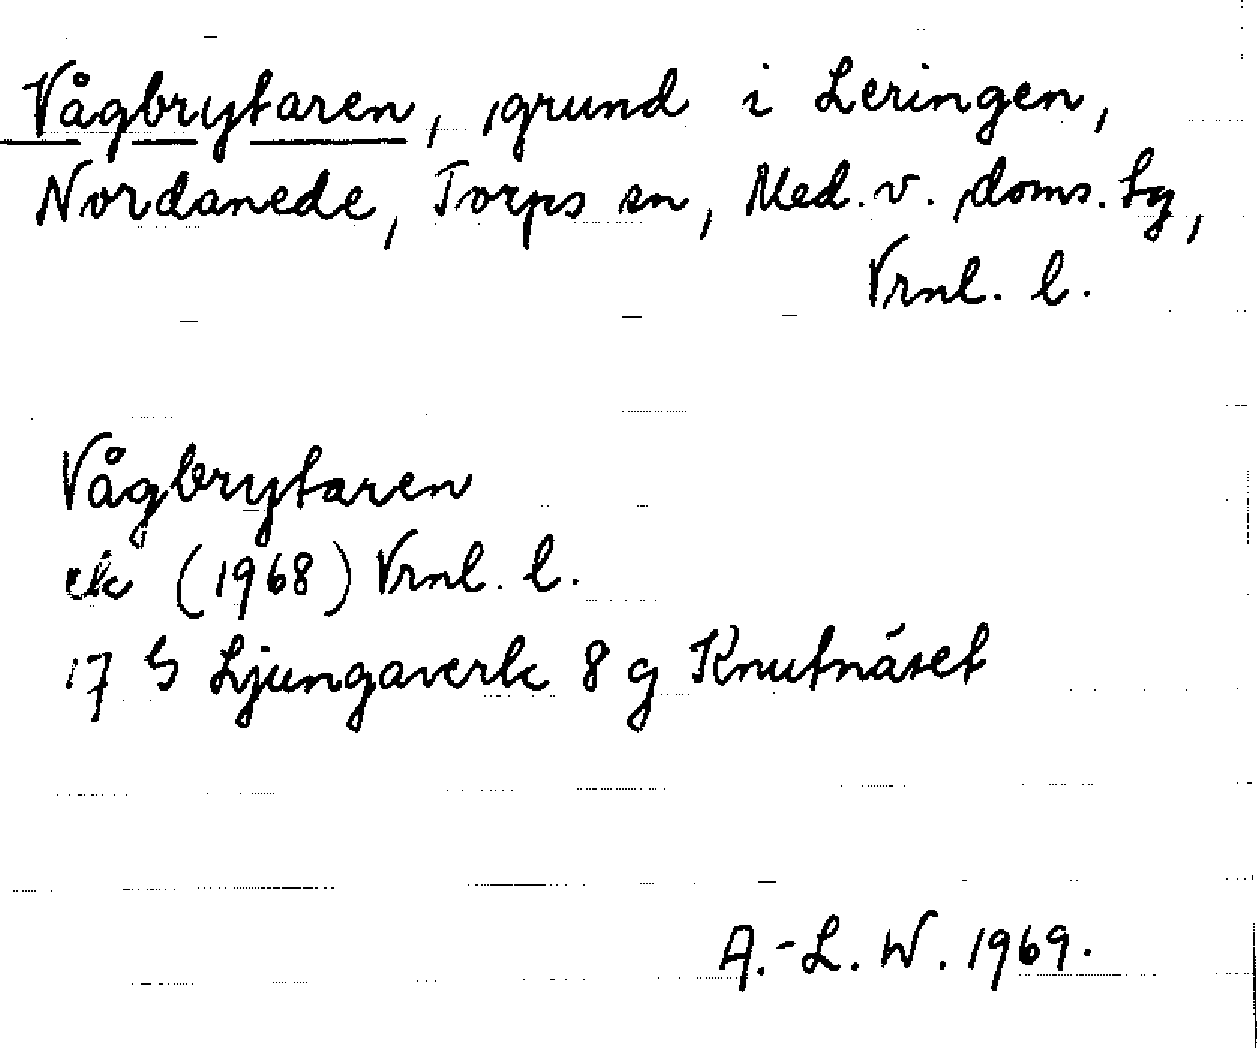 Vågbrytaren, grund i Leringen,
Nordanede, Torps sn, Med. v. doms. tg,
Vrnl. l.
Vågbrytaren
ek (1968) Vrnl. l.
17 G Ljungaverk 8 g Knutnäset
A.-L. W. 1969.